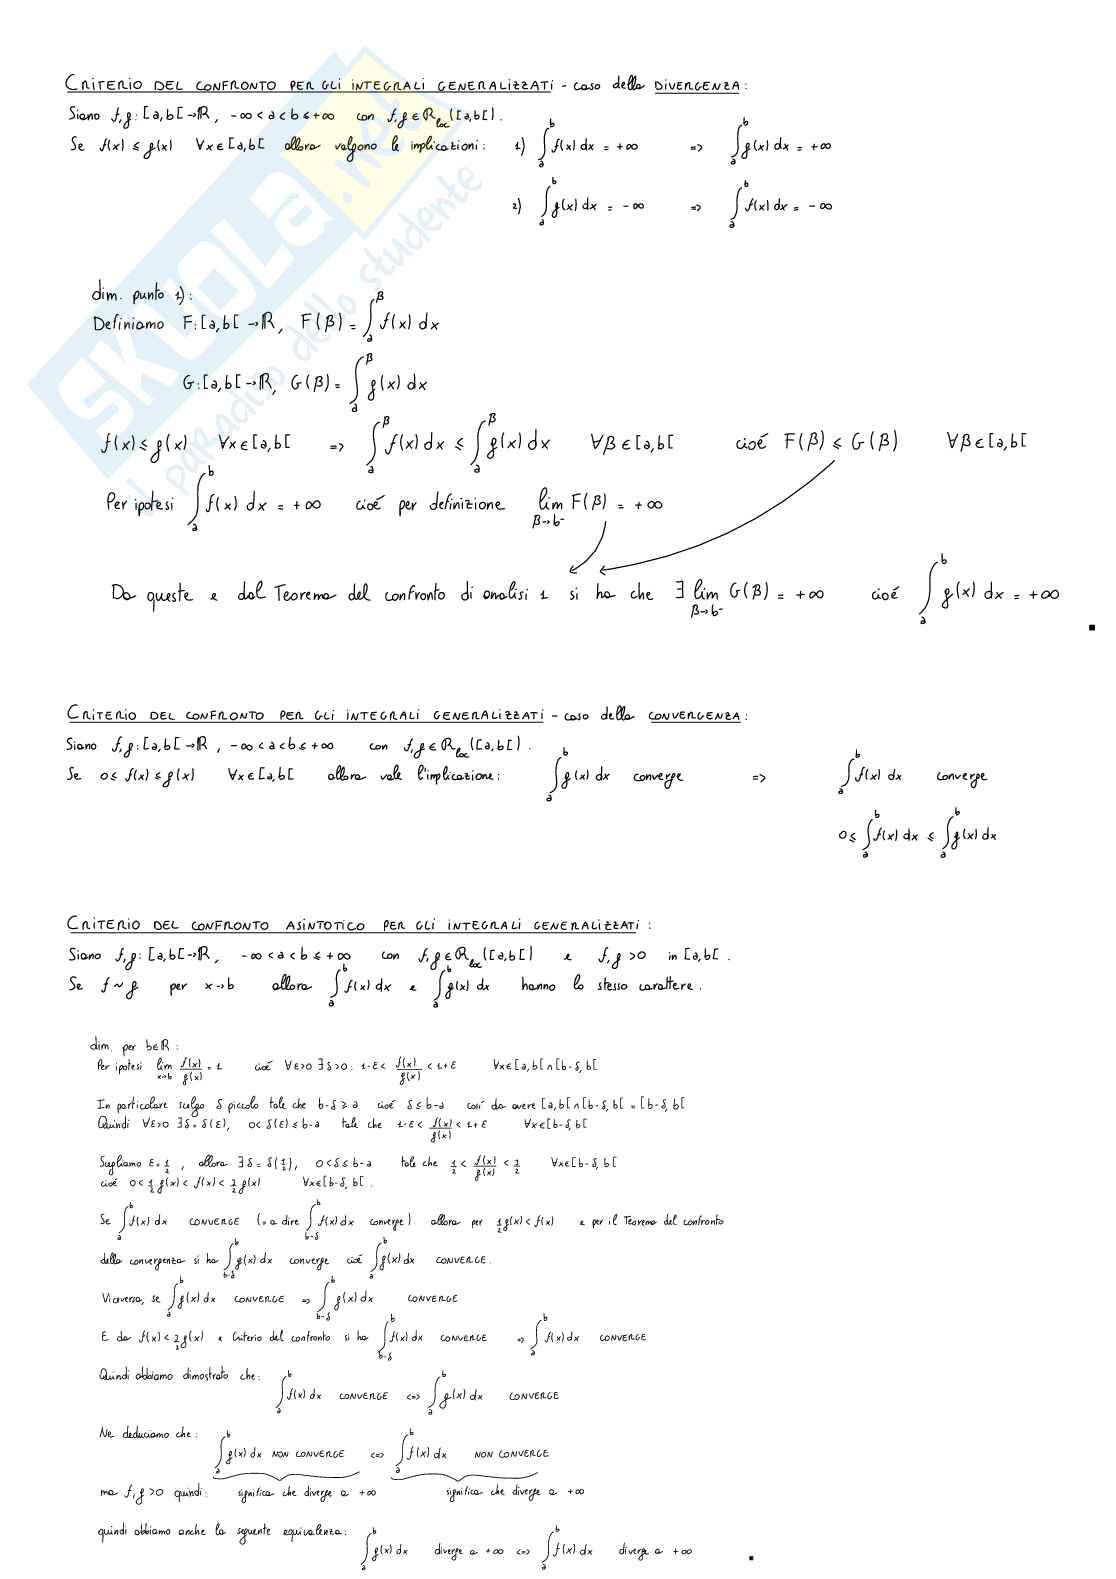 CRITERIO DEL CONFRONTO PER GLI INTEGRALI GENERALIZZATI - caso della DIVERGENZA:
Siano f,g: [a,b[ → ℝ, -∞ < a < b ≤ +∞ con f,g ∈ R_loc([a,b[).
Se f(x) ≤ g(x) ∀x ∈ [a,b[ allora valgono le implicazioni: 1) ∫_a^b f(x) dx = +∞ => ∫_a^b g(x) dx = +∞
2) ∫_a^b g(x) dx = -∞ => ∫_a^b f(x) dx = -∞
dim. punto 1):
Definiamo F: [a,b[ → ℝ, F(β) = ∫_a^β f(x) dx
G: [a,b[ → ℝ, G(β) = ∫_a^β g(x) dx
f(x) ≤ g(x) ∀x ∈ [a,b[ => ∫_a^β f(x) dx ≤ ∫_a^β g(x) dx ∀β ∈ [a,b[ cioé F(β) ≤ G(β) ∀β ∈ [a,b[
Per ipotesi ∫_a^b f(x) dx = +∞ cioé per definizione lim_{β→b⁻} F(β) = +∞
Da queste e dal Teorema del confronto di analisi 1 si ha che ∃ lim_{β→b⁻} G(β) = +∞ cioé ∫_a^b g(x) dx = +∞
CRITERIO DEL CONFRONTO PER GLI INTEGRALI GENERALIZZATI - caso della CONVERGENZA:
Siano f,g: [a,b[ → ℝ, -∞ < a < b ≤ +∞ con f,g ∈ R_loc([a,b[).
Se 0 ≤ f(x) ≤ g(x) ∀x ∈ [a,b[ allora vale l'implicazione: ∫_a^b g(x) dx converge => ∫_a^b f(x) dx converge
0 ≤ ∫_a^b f(x) dx ≤ ∫_a^b g(x) dx
CRITERIO DEL CONFRONTO ASINTOTICO PER GLI INTEGRALI GENERALIZZATI:
Siano f,g: [a,b[ → ℝ, -∞ < a < b ≤ +∞ con f,g ∈ R_loc([a,b[) e f,g > 0 in [a,b[.
Se f ~ g per x→b allora ∫_a^b f(x) dx e ∫_a^b g(x) dx hanno lo stesso carattere.
dim. per b∈ℝ:
Per ipotesi lim_{x→b} f(x)/g(x) = 1 cioé ∀ε>0 ∃δ>0: 1-ε < f(x)/g(x) < 1+ε ∀x ∈ [a,b[ ∩ [b-δ, b[
In particolare scelgo δ piccolo tale che b-δ ≥ a cioé δ ≤ b-a cosí da avere [a,b[ ∩ [b-δ, b[ = [b-δ, b[
Quindi ∀ε>0 ∃δ = δ(ε), 0 < δ(ε) ≤ b-a tale che 1-ε < f(x)/g(x) < 1+ε ∀x∈[b-δ, b[
Scegliamo ε = 1/2, allora ∃δ = δ(1/2), 0 < δ ≤ b-a tale che 1/2 < f(x)/g(x) < 3/2 ∀x∈[b-δ, b[
cioé 0 < 1/2 g(x) < f(x) < 3/2 g(x) ∀x∈[b-δ, b[.
Se ∫_a^b f(x) dx CONVERGE (= a dire ∫_{b-δ}^b f(x) dx converge) allora per 1/2 g(x) < f(x) e per il Teorema del confronto
della convergenza si ha ∫_{b-δ}^b g(x) dx converge cioé ∫_a^b g(x) dx CONVERGE.
Viceversa, se ∫_a^b g(x) dx CONVERGE => ∫_{b-δ}^b g(x) dx CONVERGE
E da f(x) < 3/2 g(x) e Criterio del confronto si ha ∫_{b-δ}^b f(x) dx CONVERGE => ∫_a^b f(x) dx CONVERGE
Quindi abbiamo dimostrato che:
∫_a^b f(x) dx CONVERGE <=> ∫_a^b g(x) dx CONVERGE
Ne deduciamo che:
∫_a^b g(x) dx NON CONVERGE <=> ∫_a^b f(x) dx NON CONVERGE
ma f,g > 0 quindi: significa che diverge a +∞ significa che diverge a +∞
quindi abbiamo anche la seguente equivalenza: ∫_a^b g(x) dx diverge a +∞ <=> ∫_a^b f(x) dx diverge a +∞
SKUOLA.net
il paradiso dello studente